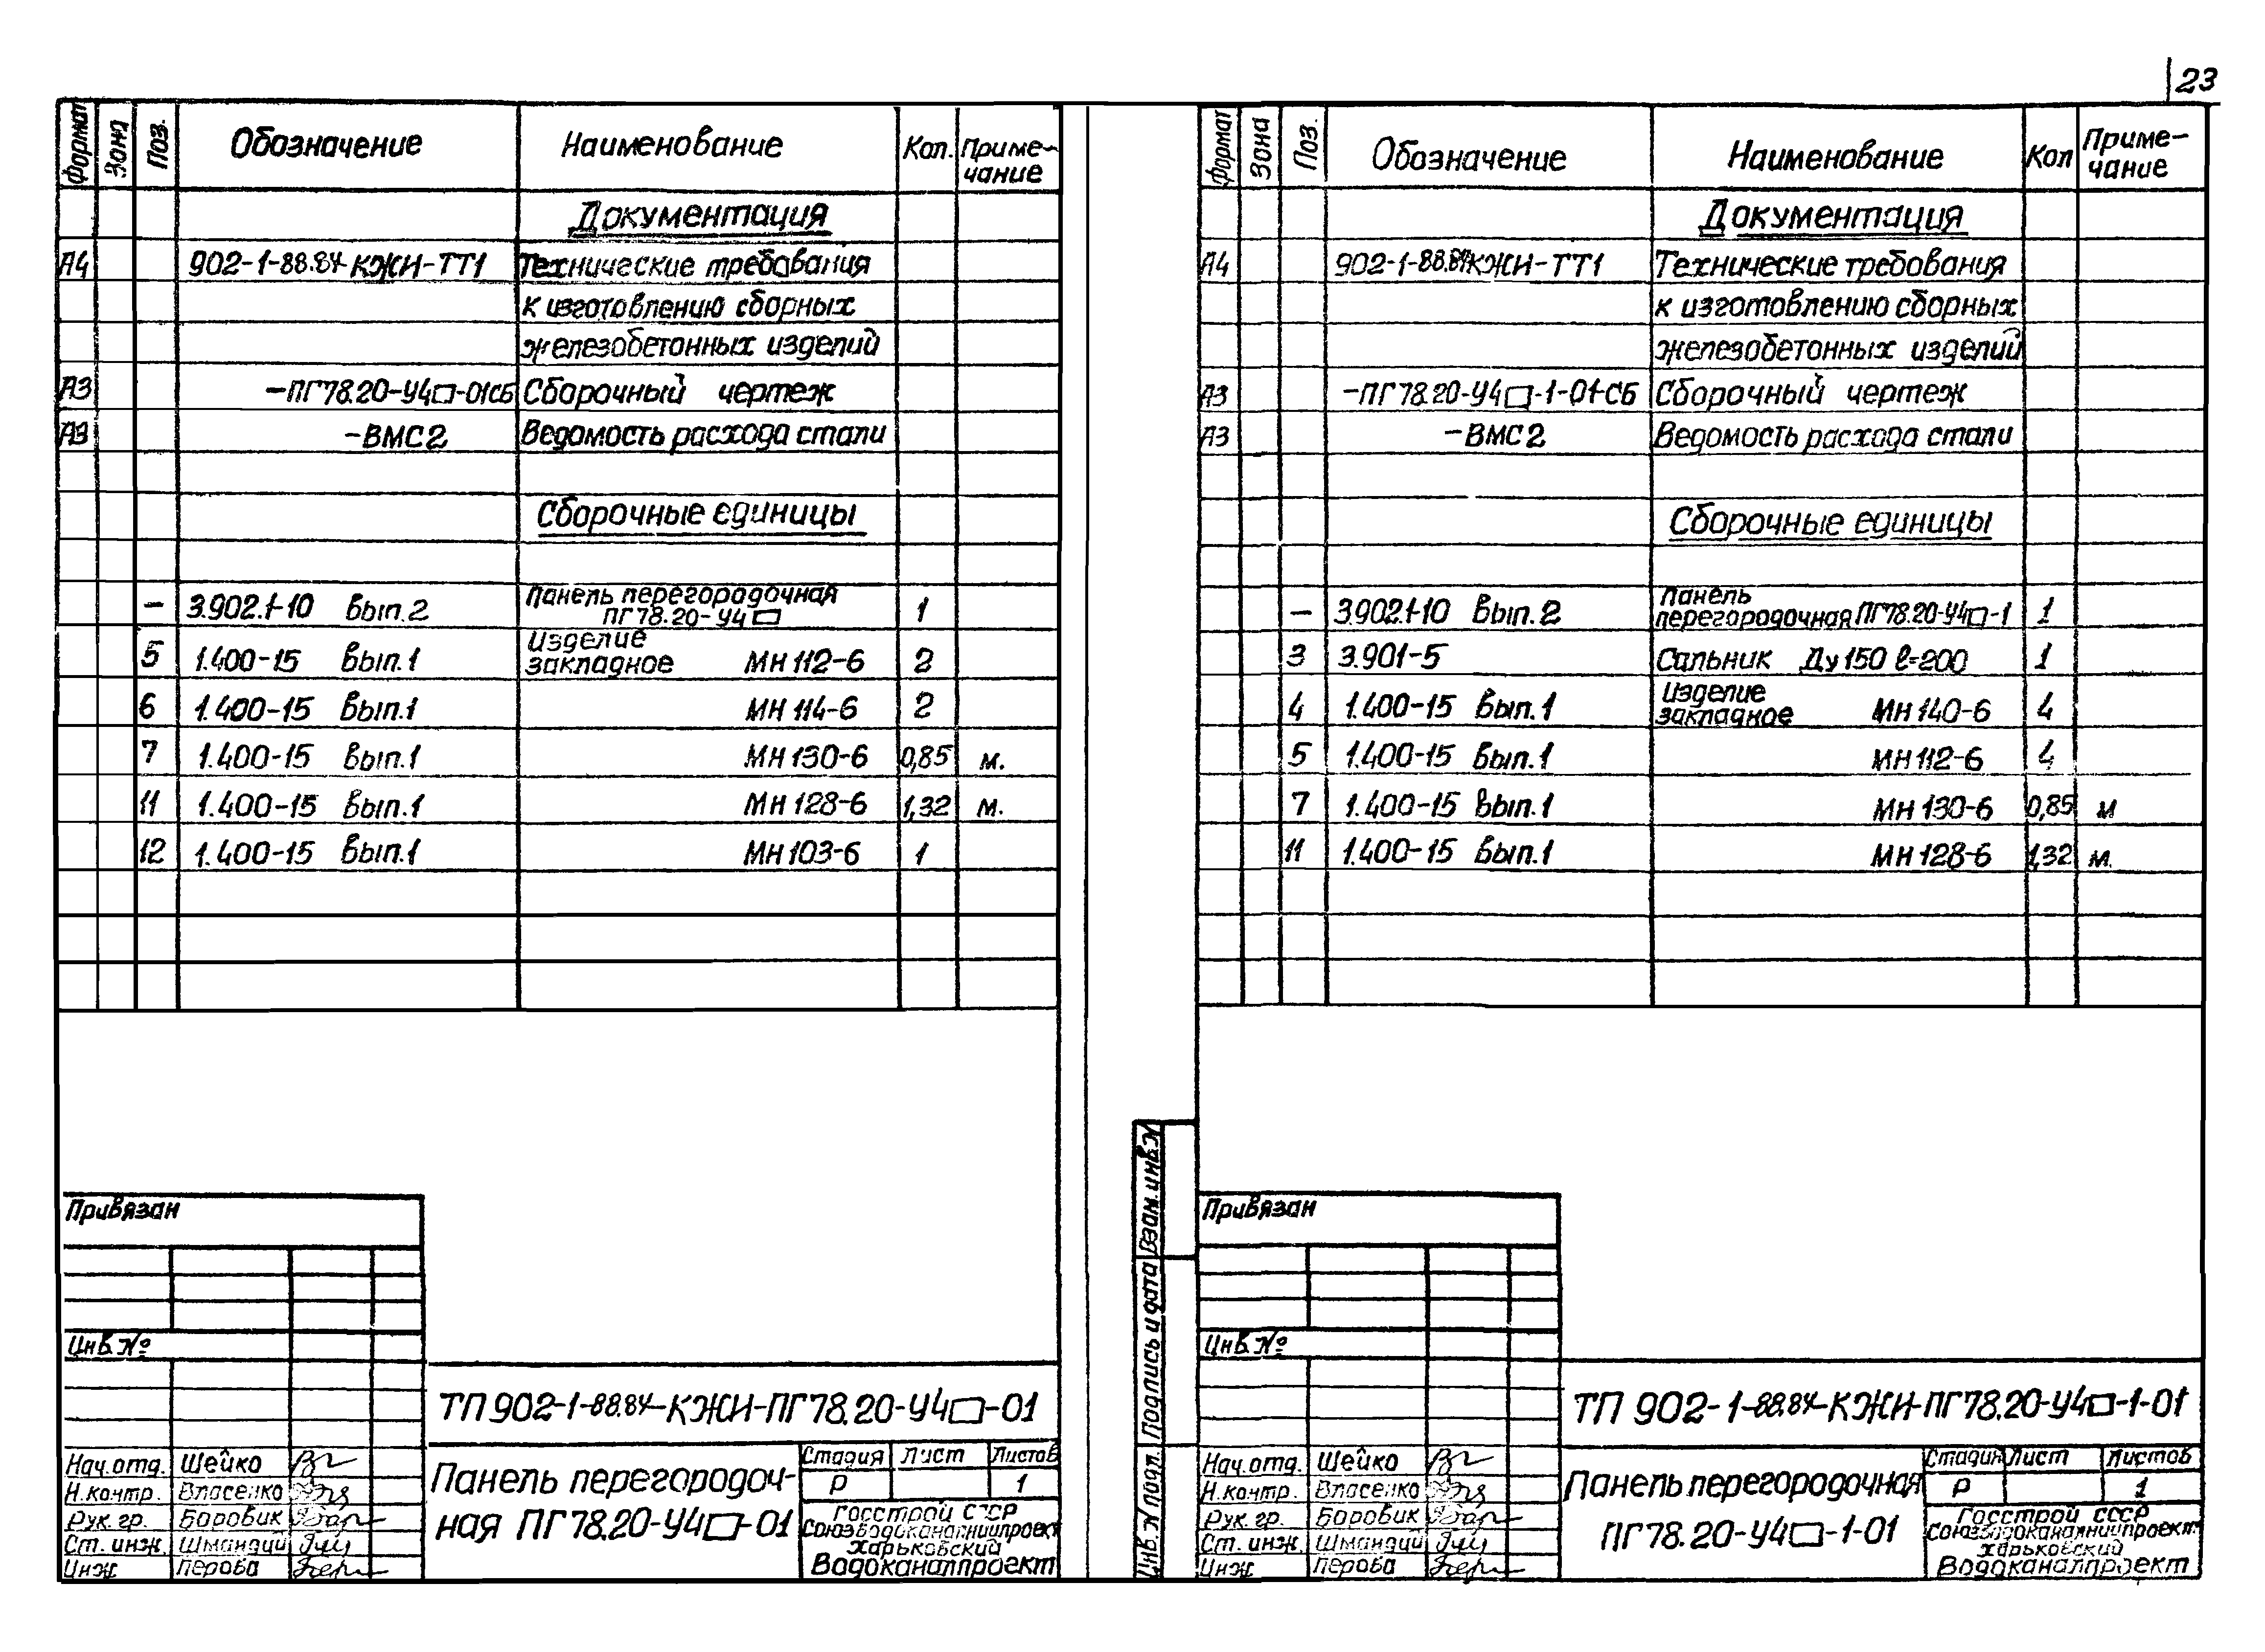 23
Формат Зона Поз. Обозначение Наименование Кол. Приме-
чание
Документация
А4 902-1-88.84-КЖИ-ТТ1 Технические требования
к изготовлению сборных
железобетонных изделий
А3 -ПГ78.20-У4□-01СБ Сборочный чертеж
А3 -ВМС2 Ведомость расхода стали
Сборочные единицы
– 3.902.1-10 Вып.2 Панель перегородочная
ПГ78.20-У4□ 1
5 1.400-15 Вып.1 Изделие
закладное МН112-6 2
6 1.400-15 Вып.1 МН114-6 2
7 1.400-15 Вып.1 МН130-6 0,85 м.
11 1.400-15 Вып.1 МН128-6 1,32 м.
12 1.400-15 Вып.1 МН103-6 1
Привязан
Инв.№
ТП 902-1-88.84-КЖИ-ПГ78.20-У4□-01
Нач.отд. Шейко
Н.контр. Власенко
Рук. гр. Боровик
Ст. инж. Шмандий
Инж Перова
Панель перегородоч-
ная ПГ78.20-У4□-01
Стадия Лист Листов
Р 1
Госстрой СССР
Союзводоканалниипроект
Харьковский
Водоканалпроект
Формат Зона Поз. Обозначение Наименование Кол Приме-
чание
Документация
А4 902-1-88.84КЖИ-ТТ1 Технические требования
к изготовлению сборных
железобетонных изделий
А3 -ПГ78.20-У4□-1-01-СБ Сборочный чертеж
А3 -ВМС2 Ведомость расхода стали
Сборочные единицы
– 3.902.1-10 Вып.2 Панель
перегородочная ПГ78.20-У4□-1 1
3 3.901-5 Сальник Ду150 ℓ=200 1
4 1.400-15 Вып.1 Изделие
закладное МН140-6 4
5 1.400-15 Вып.1 МН112-6 4
7 1.400-15 Вып.1 МН130-6 0,85 м
11 1.400-15 Вып.1 МН128-6 1,32 м.
Взам.инв.№
Подпись и дата
Инв.№ подл.
Привязан
Инв.№
ТП 902-1-88.84-КЖИ-ПГ78.20-У4□-1-01
Нач.отд. Шейко
Н.контр. Власенко
Рук. гр. Боровик
Ст. инж. Шмандий
Инж Перова
Панель перегородочная
ПГ78.20-У4□-1-01
Стадия Лист Листов
Р 1
Госстрой СССР
Союзводоканалниипроект
Харьковский
Водоканалпроект